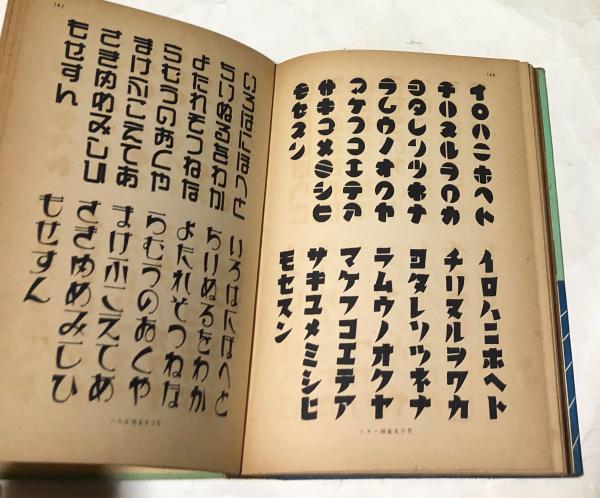 イロハニホヘト
チリヌルヲワカ
ヨタレソツネナ
ラムウノオクヤ
マケフコエテア
サキユメミシヒ
モセスン
イロハニホヘト
チリヌルヲワカ
ヨタレソツネナ
ラムウノオクヤ
マケフコエテア
サキユメミシヒ
モセスン
147
いろはにほへと
ちりぬるをわか
よたれそつねな
らむうのおくや
まけふこえてあ
さきゆめみしひ
もせすん
いろはにほへと
ちりぬるをわか
よたれそつねな
らむうのおくや
まけふこえてあ
さきゆめみしひ
もせすん